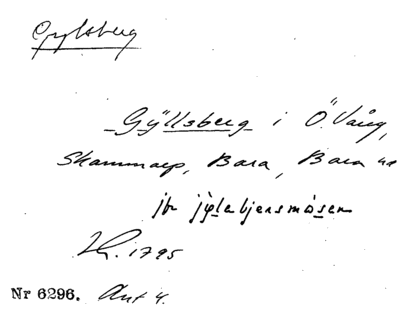 Gyllsberg
Gÿllsberg i Ö. Vång,
Skammarp, Bara, Bara hd
jfr jylebjersmosen
LG. 1795
Nr 6296. Akt 4.